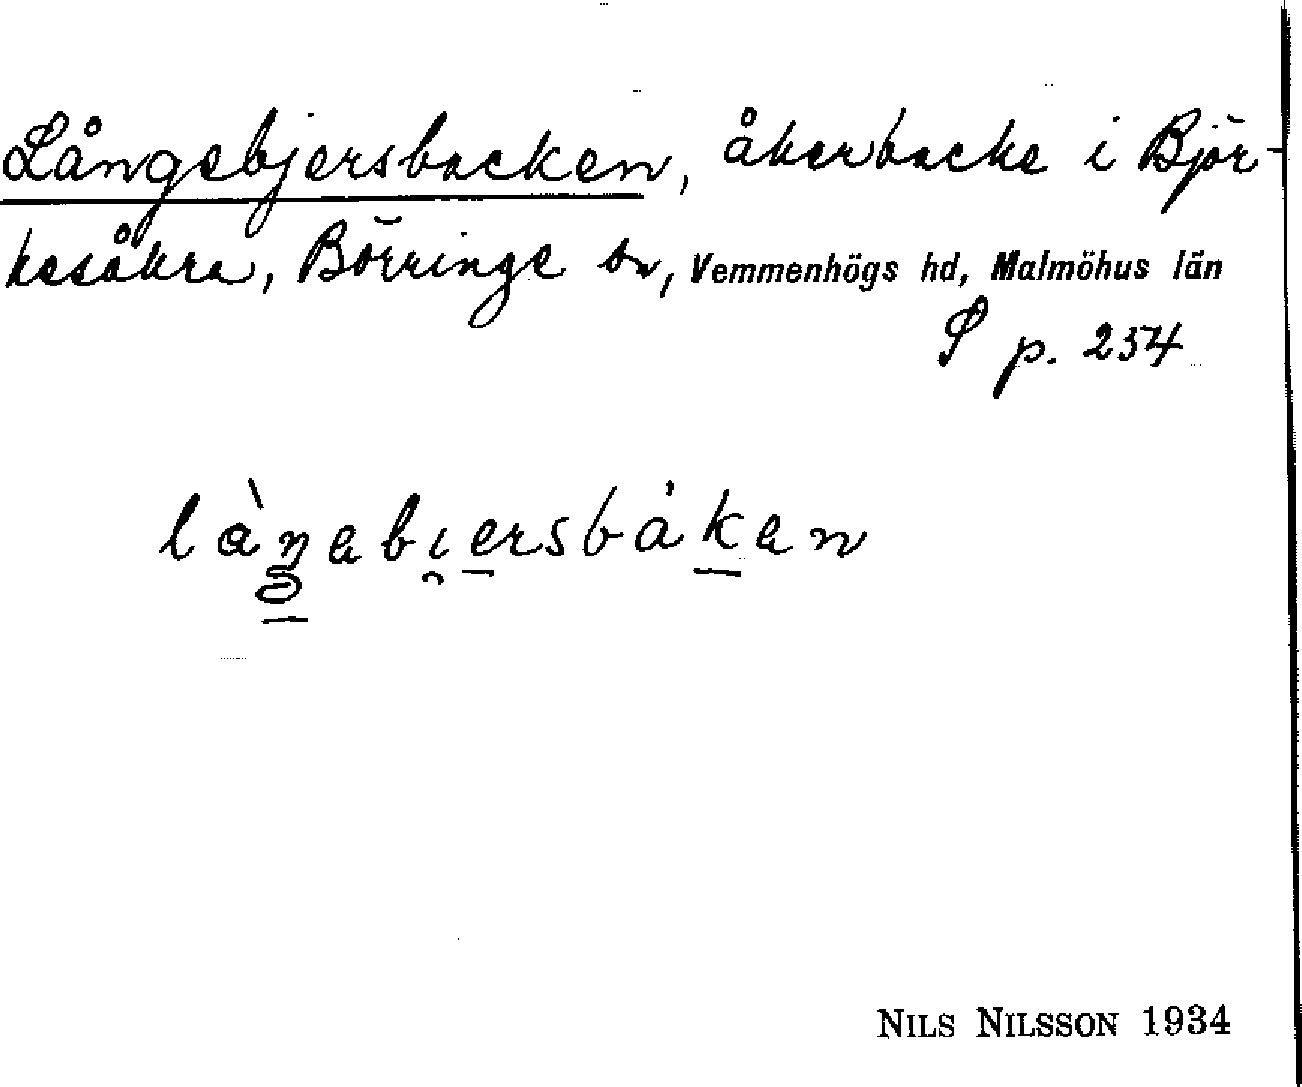 Långebjersbacken, åkerbacke i Björ-
kesåkra, Börringe sn, Vemmenhögs hd, Malmöhus län
S p. 254
NILS NILSSON 1934